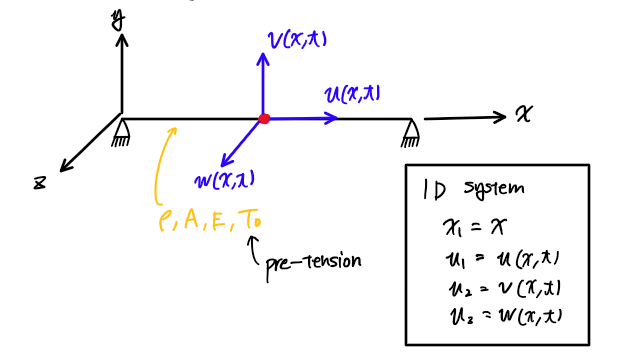 y
v(x,t)
u(x,t)
x
z
w(x,t)
ρ, A, E, T₀
pre-tension
1D system
x₁ = x
u₁ = u(x,t)
u₂ = v(x,t)
u₃ = w(x,t)